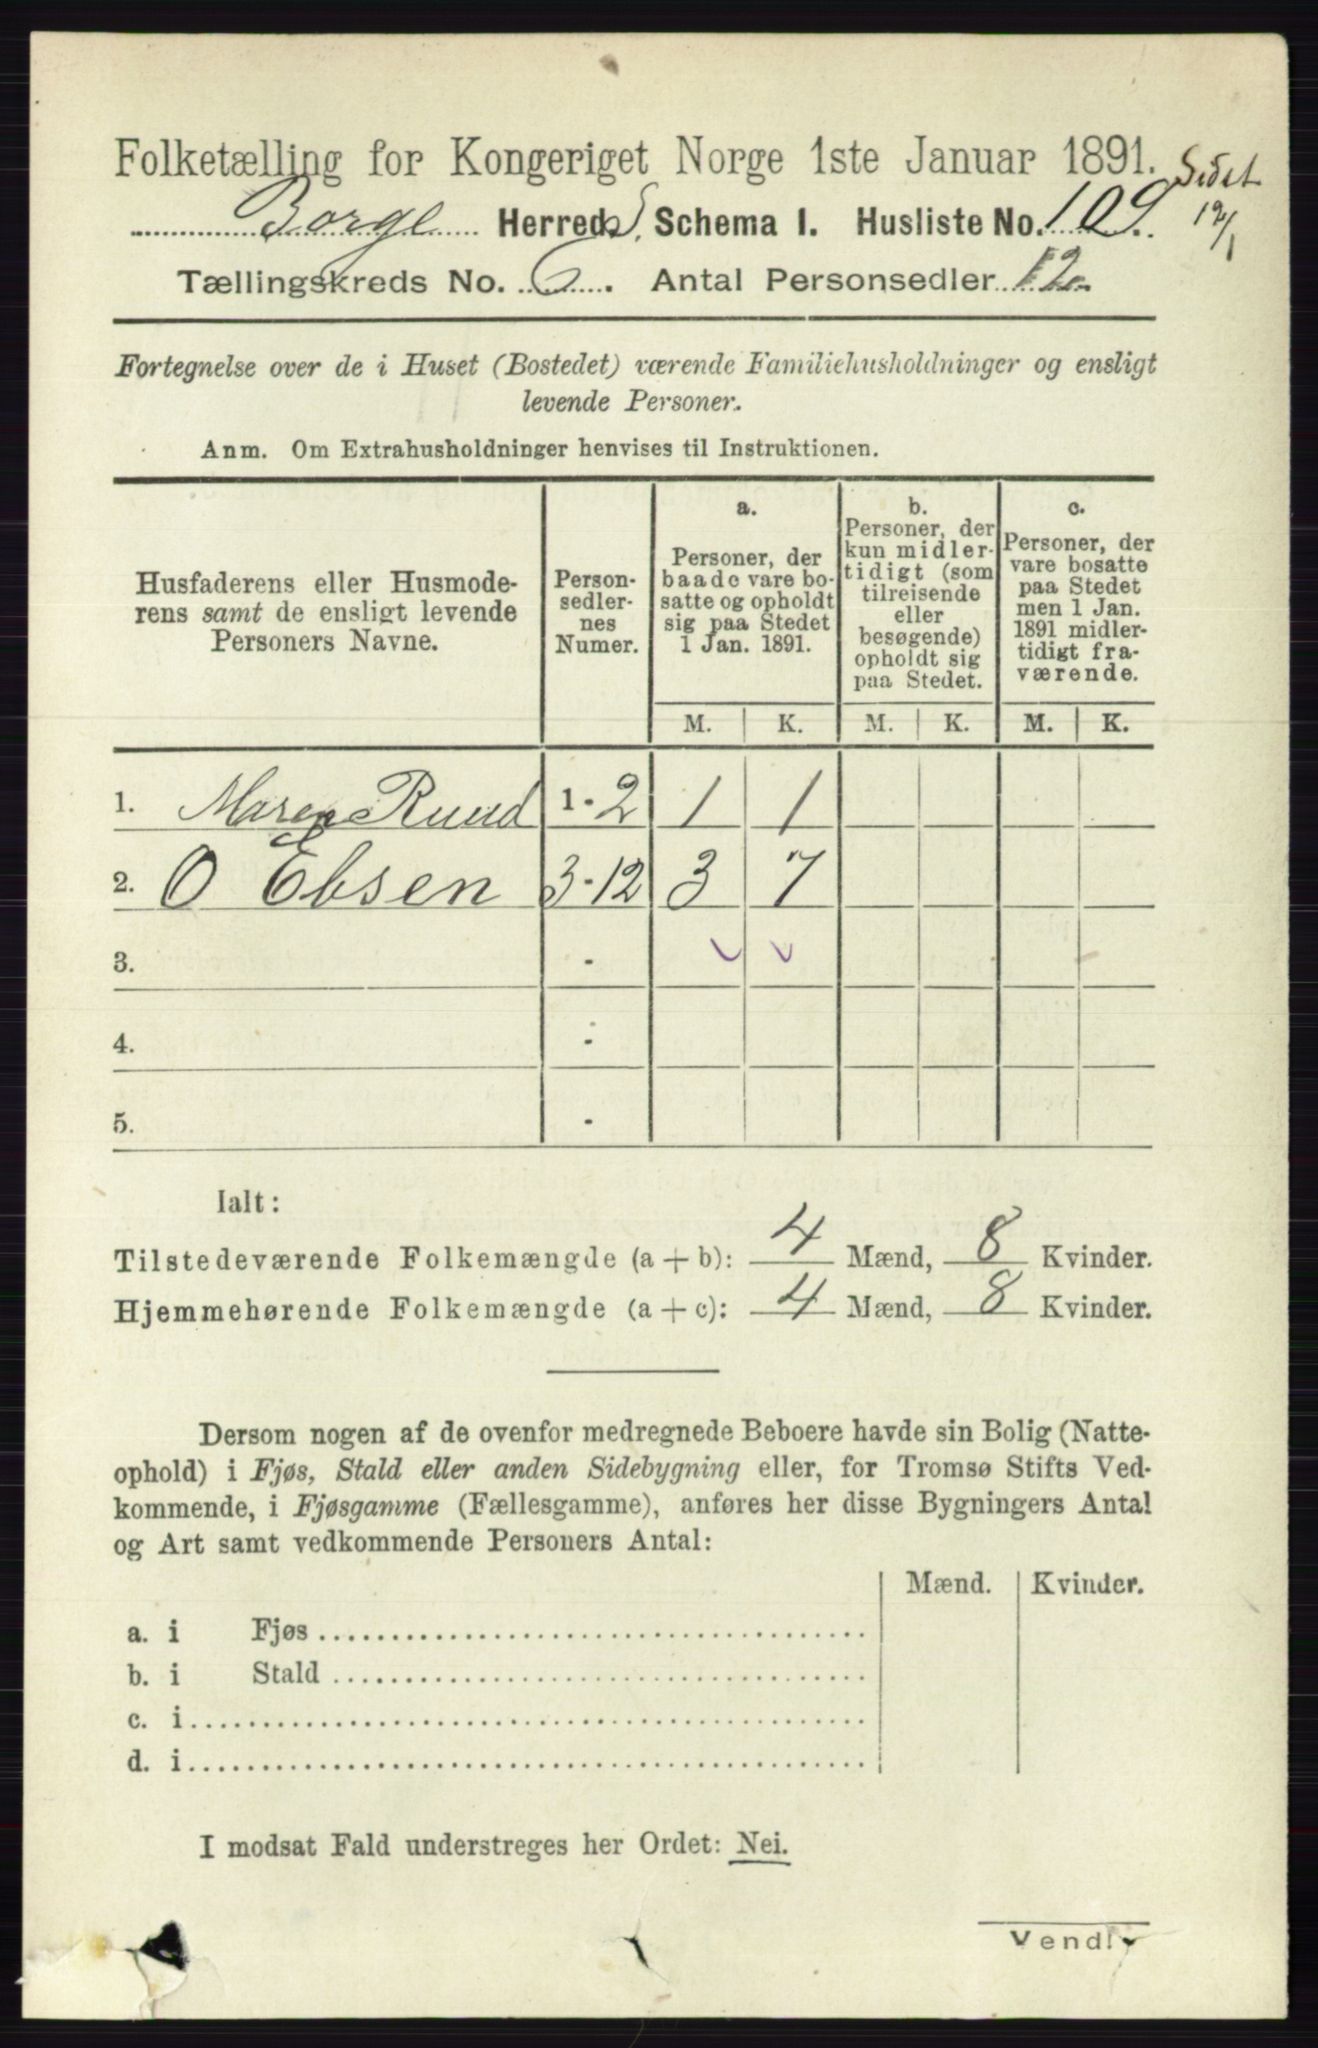 Folketælling for Kongeriget Norge 1ste Januar 1891.
Borge Herreds Schema I. Husliste No. 109.
12/1
Tællingskreds No. 6. Antal Personsedler 12.
Fortegnelse over de i Huset (Bostedet) værende Familiehusholdninger og ensligt
levende Personer.
Anm. Om Extrahusholdninger henvises til Instruktionen.
Husfaderens eller Husmode-
rens samt de ensligt levende
Personers Navne.
Person-
sedler-
nes
Numer.
a.
Personer, der
baade vare bo-
satte og opholdt
sig paa Stedet
1 Jan. 1891.
b.
Personer, der
kun midler-
tidigt (som
tilreisende
eller
besøgende)
opholdt sig
paa Stedet.
c.
Personer, der
vare bosatte
paa Stedet
men 1 Jan.
1891 midler-
tidigt fra-
værende.
M. K. M. K. M. K.
1. Maren Ruud 1-2 1 1
2. O Ebsen 3-12 3 7
3. -
4. -
5. -
Ialt:
Tilstedeværende Folkemængde (a + b): 4 Mænd, 8 Kvinder.
Hjemmehørende Folkemængde (a + c): 4 Mænd, 8 Kvinder.
Dersom nogen af de ovenfor medregnede Beboere havde sin Bolig (Natte-
ophold) i Fjøs, Stald eller anden Sidebygning eller, for Tromsø Stifts Ved-
kommende, i Fjøsgamme (Fællesgamme), anføres her disse Bygningers Antal
og Art samt vedkommende Personers Antal:
Mænd. Kvinder.
a. i Fjøs
b. i Stald
c. i
d. i
I modsat Fald understreges her Ordet: Nei.
Vend!